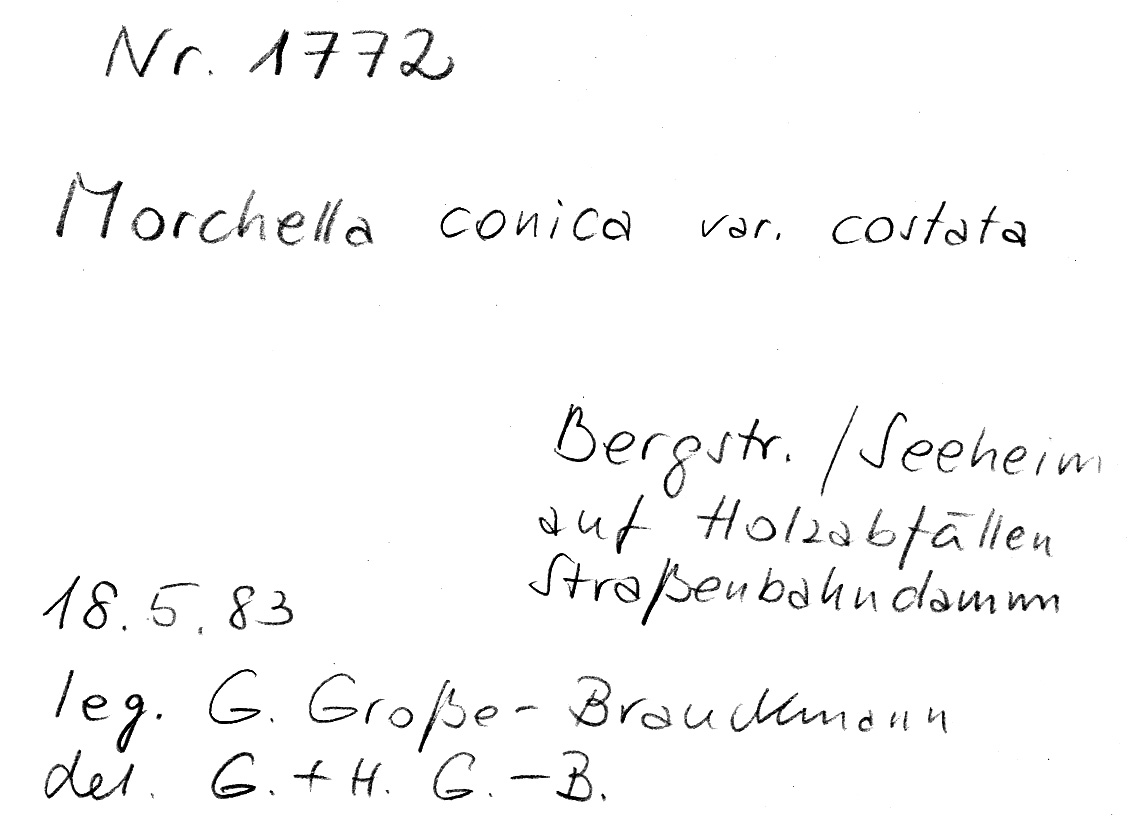 Nr. 1772
Morchella conica var. costata
Bergstr. / Seeheim
auf Holzabfällen
Straßenbahndamm
18.5.83
leg. G. Große-Brauckmann
det. G. + H. G.-B.